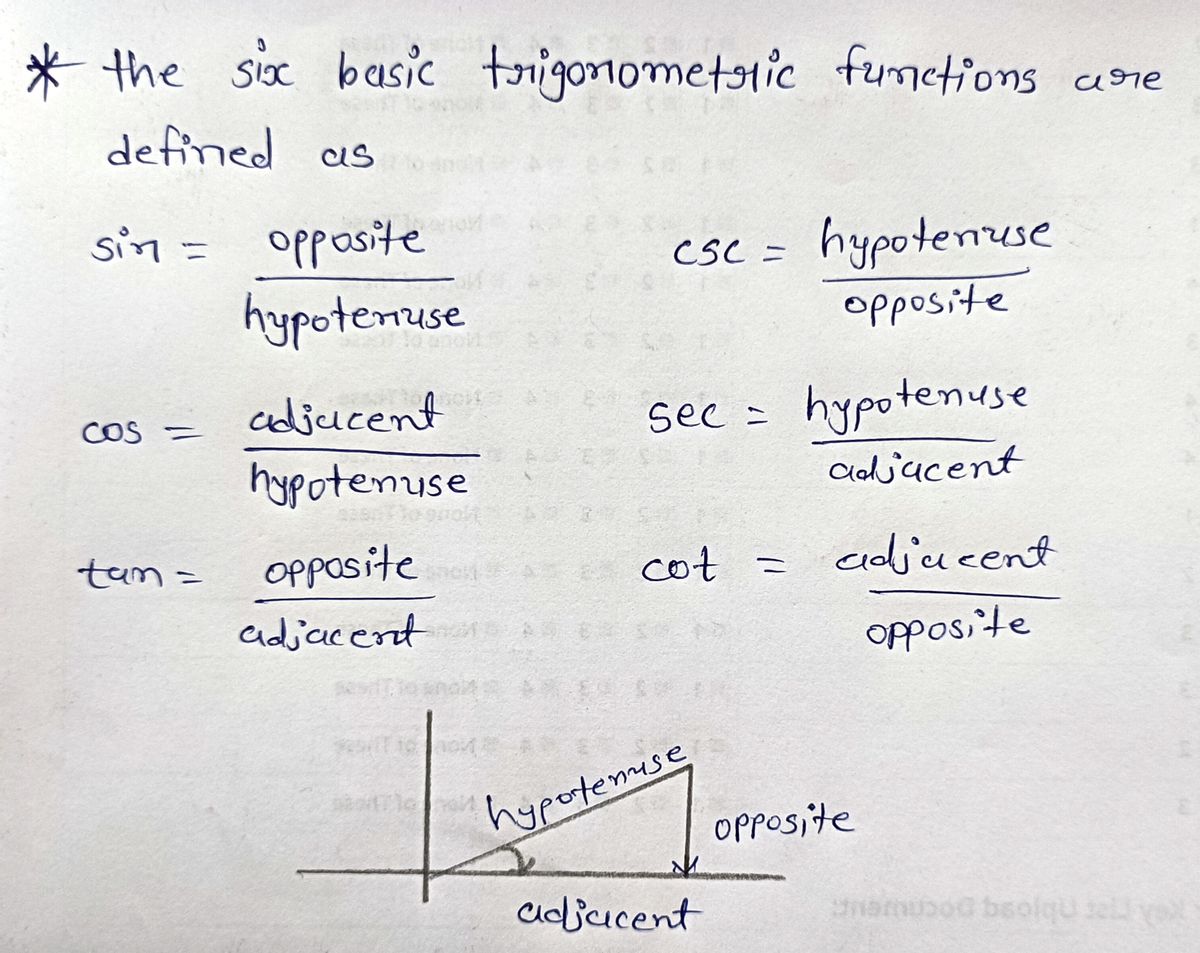 * the six basic trigonometric functions are
defined as
sin = opposite / hypotenuse
csc = hypotenuse / opposite
cos = adjacent / hypotenuse
sec = hypotenuse / adjacent
tan = opposite / adjacent
cot = adjacent / opposite
hypotenuse
opposite
adjacent